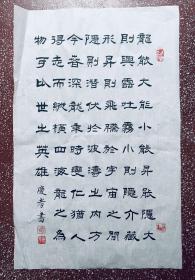 龍能大能小能昇能隱大
則興雲吐霧小則隱介藏
形昇則飛騰於宇宙之間
隱則潛伏於波濤之内方
今春深龍乘時變化猶人
得志而縱橫四海龍之為
物可比世之英雄 慶書